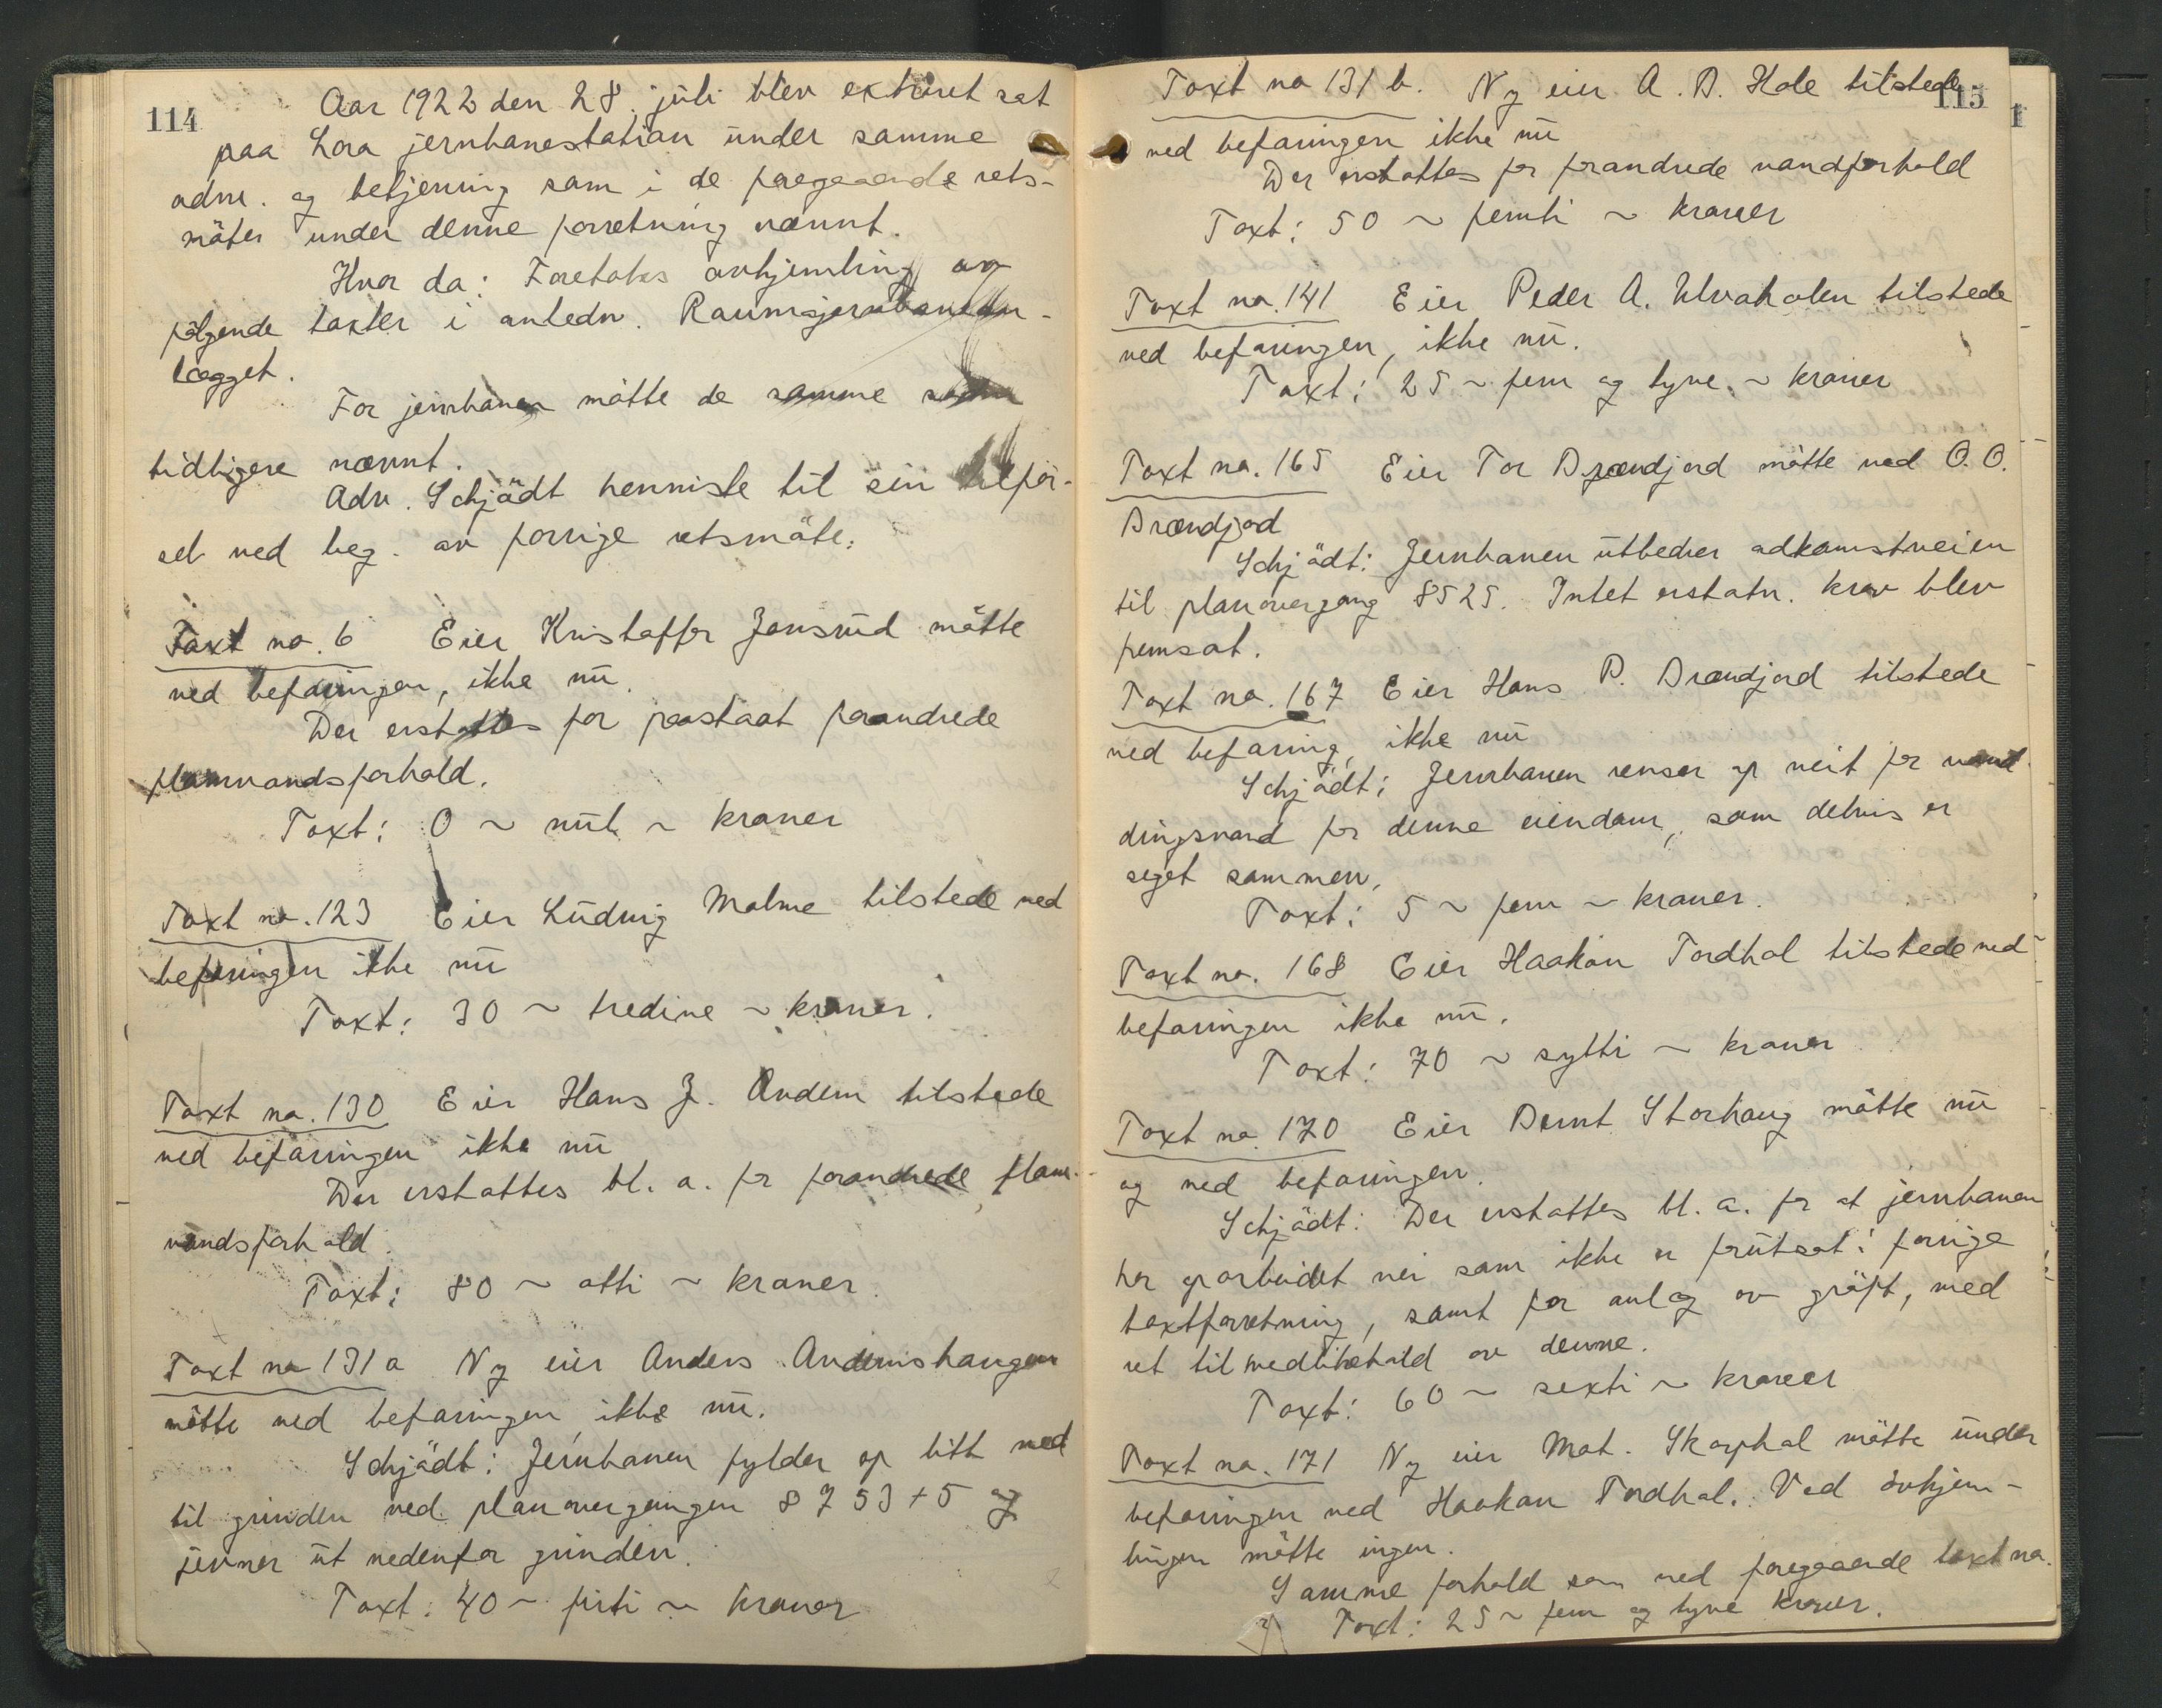 114
Aar 1922 den 28. juli blev extraret sat
paa Lora jernbanestation under samme
adm. og betjening som i de foregaaende rets-
möter under denne forretning nævnt.
Hvor da: Foretokes avhjemling av
følgende takster i anledn. Raumajernbanean-
lægget.
For jernbanen mötte de samme som
tidligere nævnt.
Adv. Schjödt henviste til sin tilför-
sel ved beg. av forrige retsmöte.
Taxt no. 6 Eier Kristoffer Jonsrud mötte
ved befaringen, ikke nu.
Der erstattes for paastaat forandrede
flomvandsforhold.
Taxt: 0 ~ nul ~ kroner
Taxt no. 123 Eier Ludvig Malme tilstede ved
befaringen ikke nu
Taxt: 30 ~ tredive ~ kroner.
Taxt no. 130 Eier Hans J. Andem tilstede
ved befaringen ikke nu
Der erstattes bl. a. for forandrede flom-
vandsforhold.
Taxt: 80 ~ otti ~ kroner.
Taxt no 131 a Ny eier Anders Andemshaugen
mötte ved befaringen ikke nu.
Schjödt: Jernbanen fylder op litt ved
til grinden ved planovergangen 8753+5 og
jevner ut nedenfor grinden.
Taxt: 40 ~ firti ~ kroner
115
Taxt no 131 b. Ny eier A. B. Hole tilstede
ved befaringen ikke nu
Der erstattes for forandrede vandforhold
Taxt: 50 ~ femti ~ kroner
Taxt no. 141 Eier Peder A. Ulvaholen tilstede
ved befaringen, ikke nu.
Taxt: 25 ~ fem og tyve ~ kroner
Taxt no. 165 Eier Tor Brændjord mötte ved O. O.
Brændjord
Schjödt: Jernbanen utbedrer adkomstveien
til planovergang 8525. Intet erstatn. krav blev
fremsat.
Taxt no. 167 Eier Hans P. Brændjord tilstede
ved befaring, ikke nu
Schjödt: Jernbanen renser op veit for vand
dingsvand for denne eiendom, som delvis er
seget sammen.
Taxt: 5 ~ fem ~ kroner.
Taxt no. 168 Eier Haakon Tordhol tilstede ved
befaringen ikke nu.
Taxt: 70 ~ sytti ~ kroner
Taxt no 170 Eier Bernt Storhaug mötte nu
og ved befaringen.
Schjödt: Der erstattes bl. a. for at jernbanen
har oparbeidet vei som ikke er forutsat i forrige
taxtforretning, samt for anlæg av gröft, med
ret til vedlikehold av denne.
Taxt: 60 ~ sexti ~ kroner
Taxt no. 171 Ny eier Mat. Skarphol mötte under
befaringen ved Haakon Tordhol. Ved avhjem-
lingen mötte ingen.
Samme forhold som ved foregaaende taxt no.
Taxt: 25 ~ fem og tyve kroner.